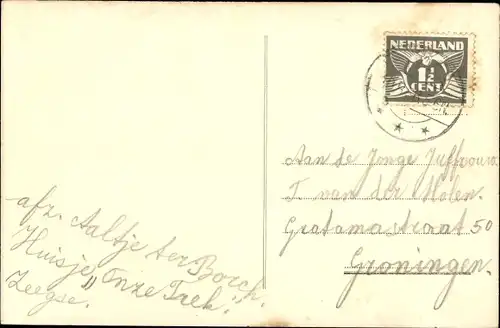 afz. Aaltje ter Borch.
Huisje "Onze Trek".
Zeegse.
NEDERLAND
1½
CENT
Aan de Jonge Juffrouw.
T. van der Molen.
Gratamastraat 50
Groningen.